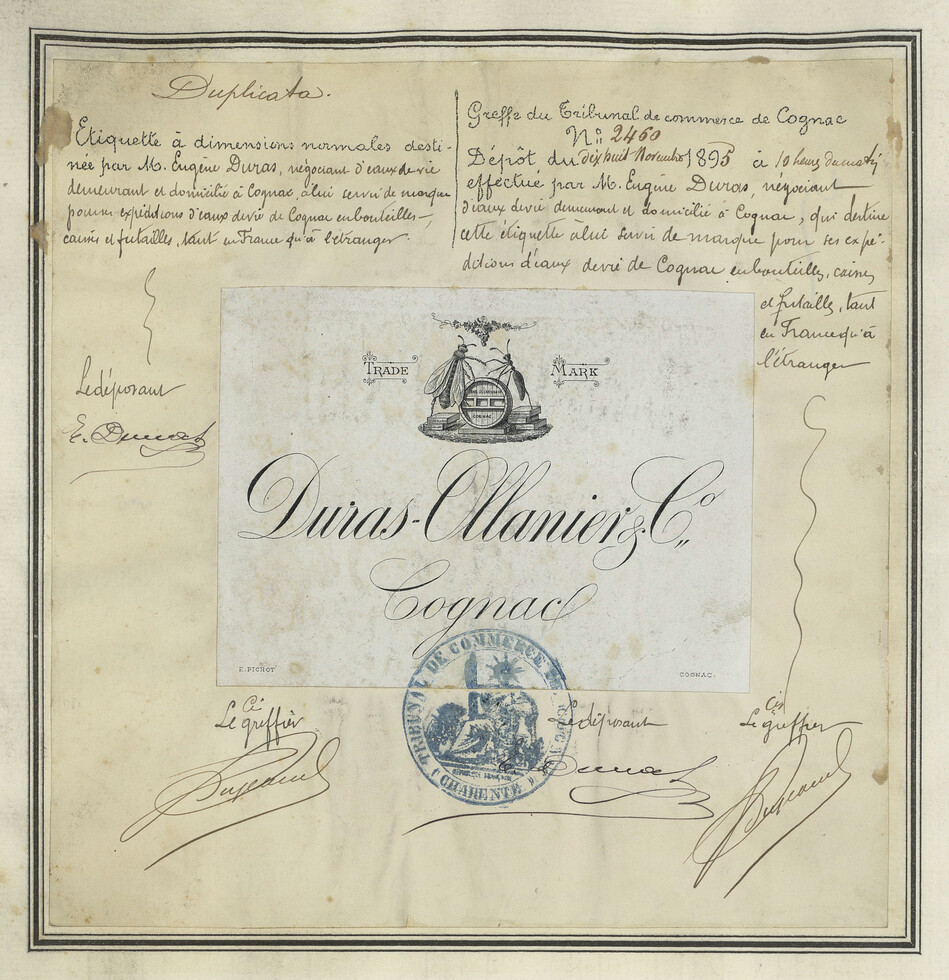 Duplicata.
Etiquette à dimensions normales desti-
née par M. Eugène Duras, négociant d'eaux de vie
demeurant et domicilié à Cognac, à lui servir de marque
pour ses expéditions d'eaux de vie de Cognac en bouteilles
caisses et futailles, tant en France qu'à l'étranger.
Le déposant
E. Duras
Greffe du Tribunal de commerce de Cognac
N° 2460
Dépôt du dix huit Novembre 1895 à 10 heures du matin
effectué par M. Eugène Duras, négociant
d'eaux de vie demeurant et domicilié à Cognac, qui destine
cette étiquette à lui servir de marque pour ses expé-
ditions d'eaux de vie de Cognac en bouteilles, caisses
et futailles, tant
en France qu'à
l'étranger
TRADE MARK
COGNAC
Duras-Ollanier & Co
Cognac
E. PICHOT
COGNAC.
TRIBUNAL DE COMMERCE DE COGNAC
RÉPUBLIQUE FRANÇAISE
(CHARENTE)
Le greffier
Le déposant
E. Duras
Le greffier